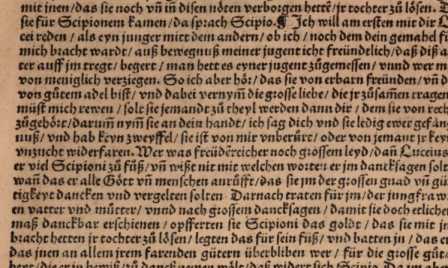 mit jnen / das sie noch vñ in disen nöten verborgen hettē / jr tochter zů lösen. D
sie für Scipionem kamen / da sprach Scipio. Ich will am ersten mit dir
cei reden / als eyn junger mitt dem andern / ob ich / noch dem dein gemahel f
mich bracht wardt / auß bewegnuß meiner jugent icht freündelich / daß diß a
ter auff jm tregt / begert / man hett es eyner jugent zůgemessen / vnnd wer m
von meniglich verzigen. So ich aber hör / das sie von erbarn freünden / vñ
von gůtem adel bißt / vnd dabei vernym die grosse liebe / die jr zůsamen tragen
müßt mich rewen / solt sie jemandt zů theyl werden dann dir / dem sie von rech
zůgehört / darum̃ nym̃ sie an dein handt / ich sag dich vnd sie ledig ewer gefän
nuß / vnd hab keyn zweyffel / sie ist von mir vnberürt / oder von jemant jr key
vnzucht widerfaren. Wer was freüderēicher noch grossem leyd / dan̄ Lucceius
er viel Scipioni zů füß / vñ wißt nit mit welchen worten er im dancksagen solt
wan̄ das er alle Gött vñ menschen anrüfft / das sie jm der grossen gnad vñ gů
tigkeyt dancken vnd vergelten solten. Darnach traten für jm / der jungfraw
en vatter vnd můtter / vnnd nach grossem dancksagen / damit sie doch etlicher
maß danckbar erschienen / opfferten sie Scipioni das goldt / das sie mit jn
bracht hetten jr tochter zů lösen / legten das für sein füß / vnd batten jn / das er
das jnen an allem jrem farenden gütern überbliben wer / für die große gů